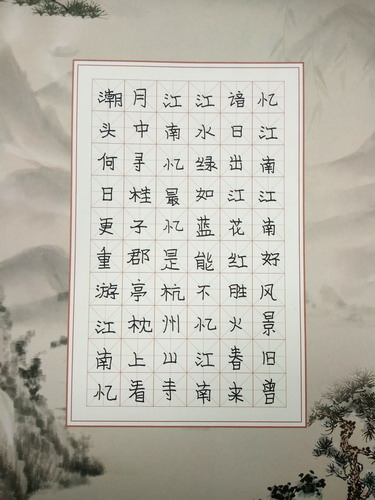 忆江南江南好风景旧曾
谙日出江花红胜火春来
江水绿如蓝能不忆江南
江南忆最忆是杭州山寺
月中寻桂子郡亭枕上看
潮头何日更重游江南忆